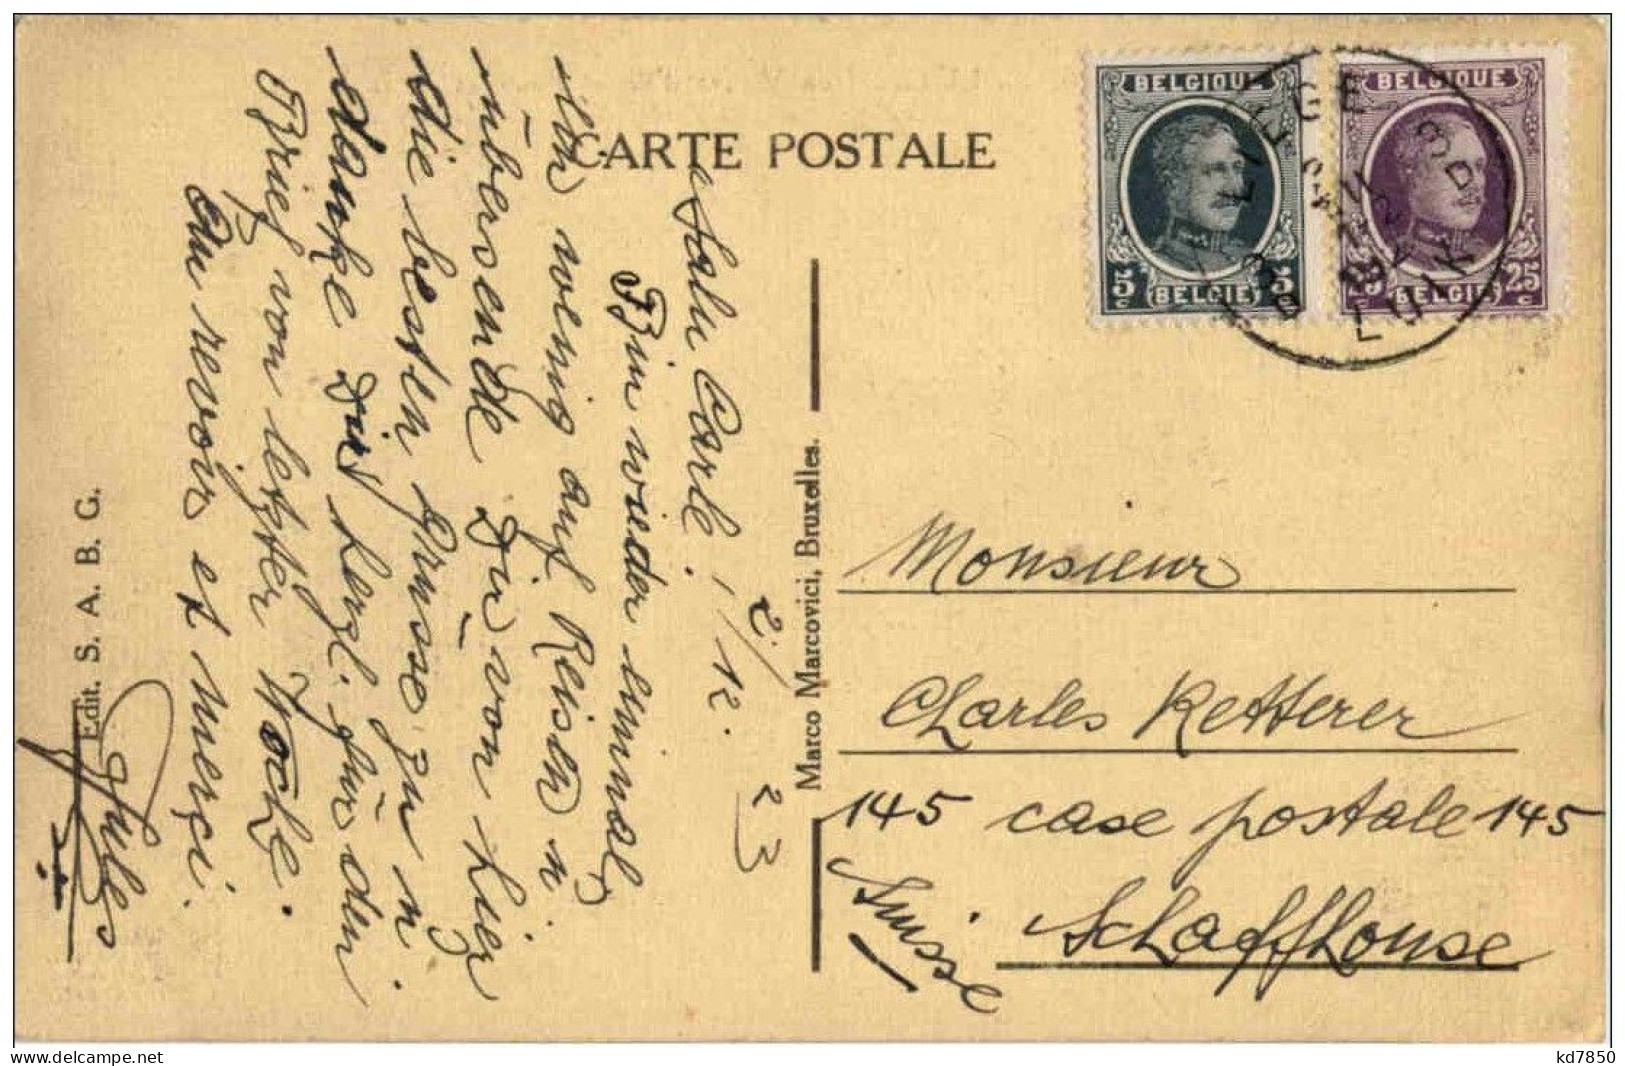 CARTE POSTALE
BELGIQUE
5 5
c c
(BELGIE)
BELGIQUE
25 25
c c
BELGIE
LIEGE
LUIK
Salu Carle! 2./12. 23
Bin wieder einmal
ein wenig auf Reisen u.
übersende Dir von hier
die besten Grüsse zu n
danke Dir herzl. für den
Brief von letzter Woche.
Au revoir et merçi.
Jules
Edit. S. A. B. G.
Marco Marcovici, Bruxelles.
Monsieur
Charles Ketterer
145 case postale 145
Schaffhouse
Suisse
delcampe.net
kd7850